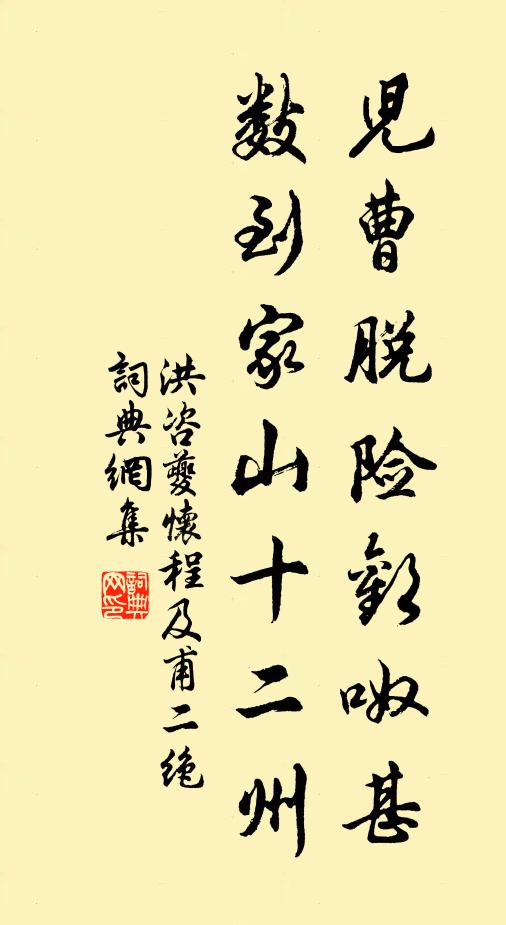 兒曹脱險歡呶甚
數到家山十二州
洪咨夔懷程及甫二絶
詞典網集
詞典网印